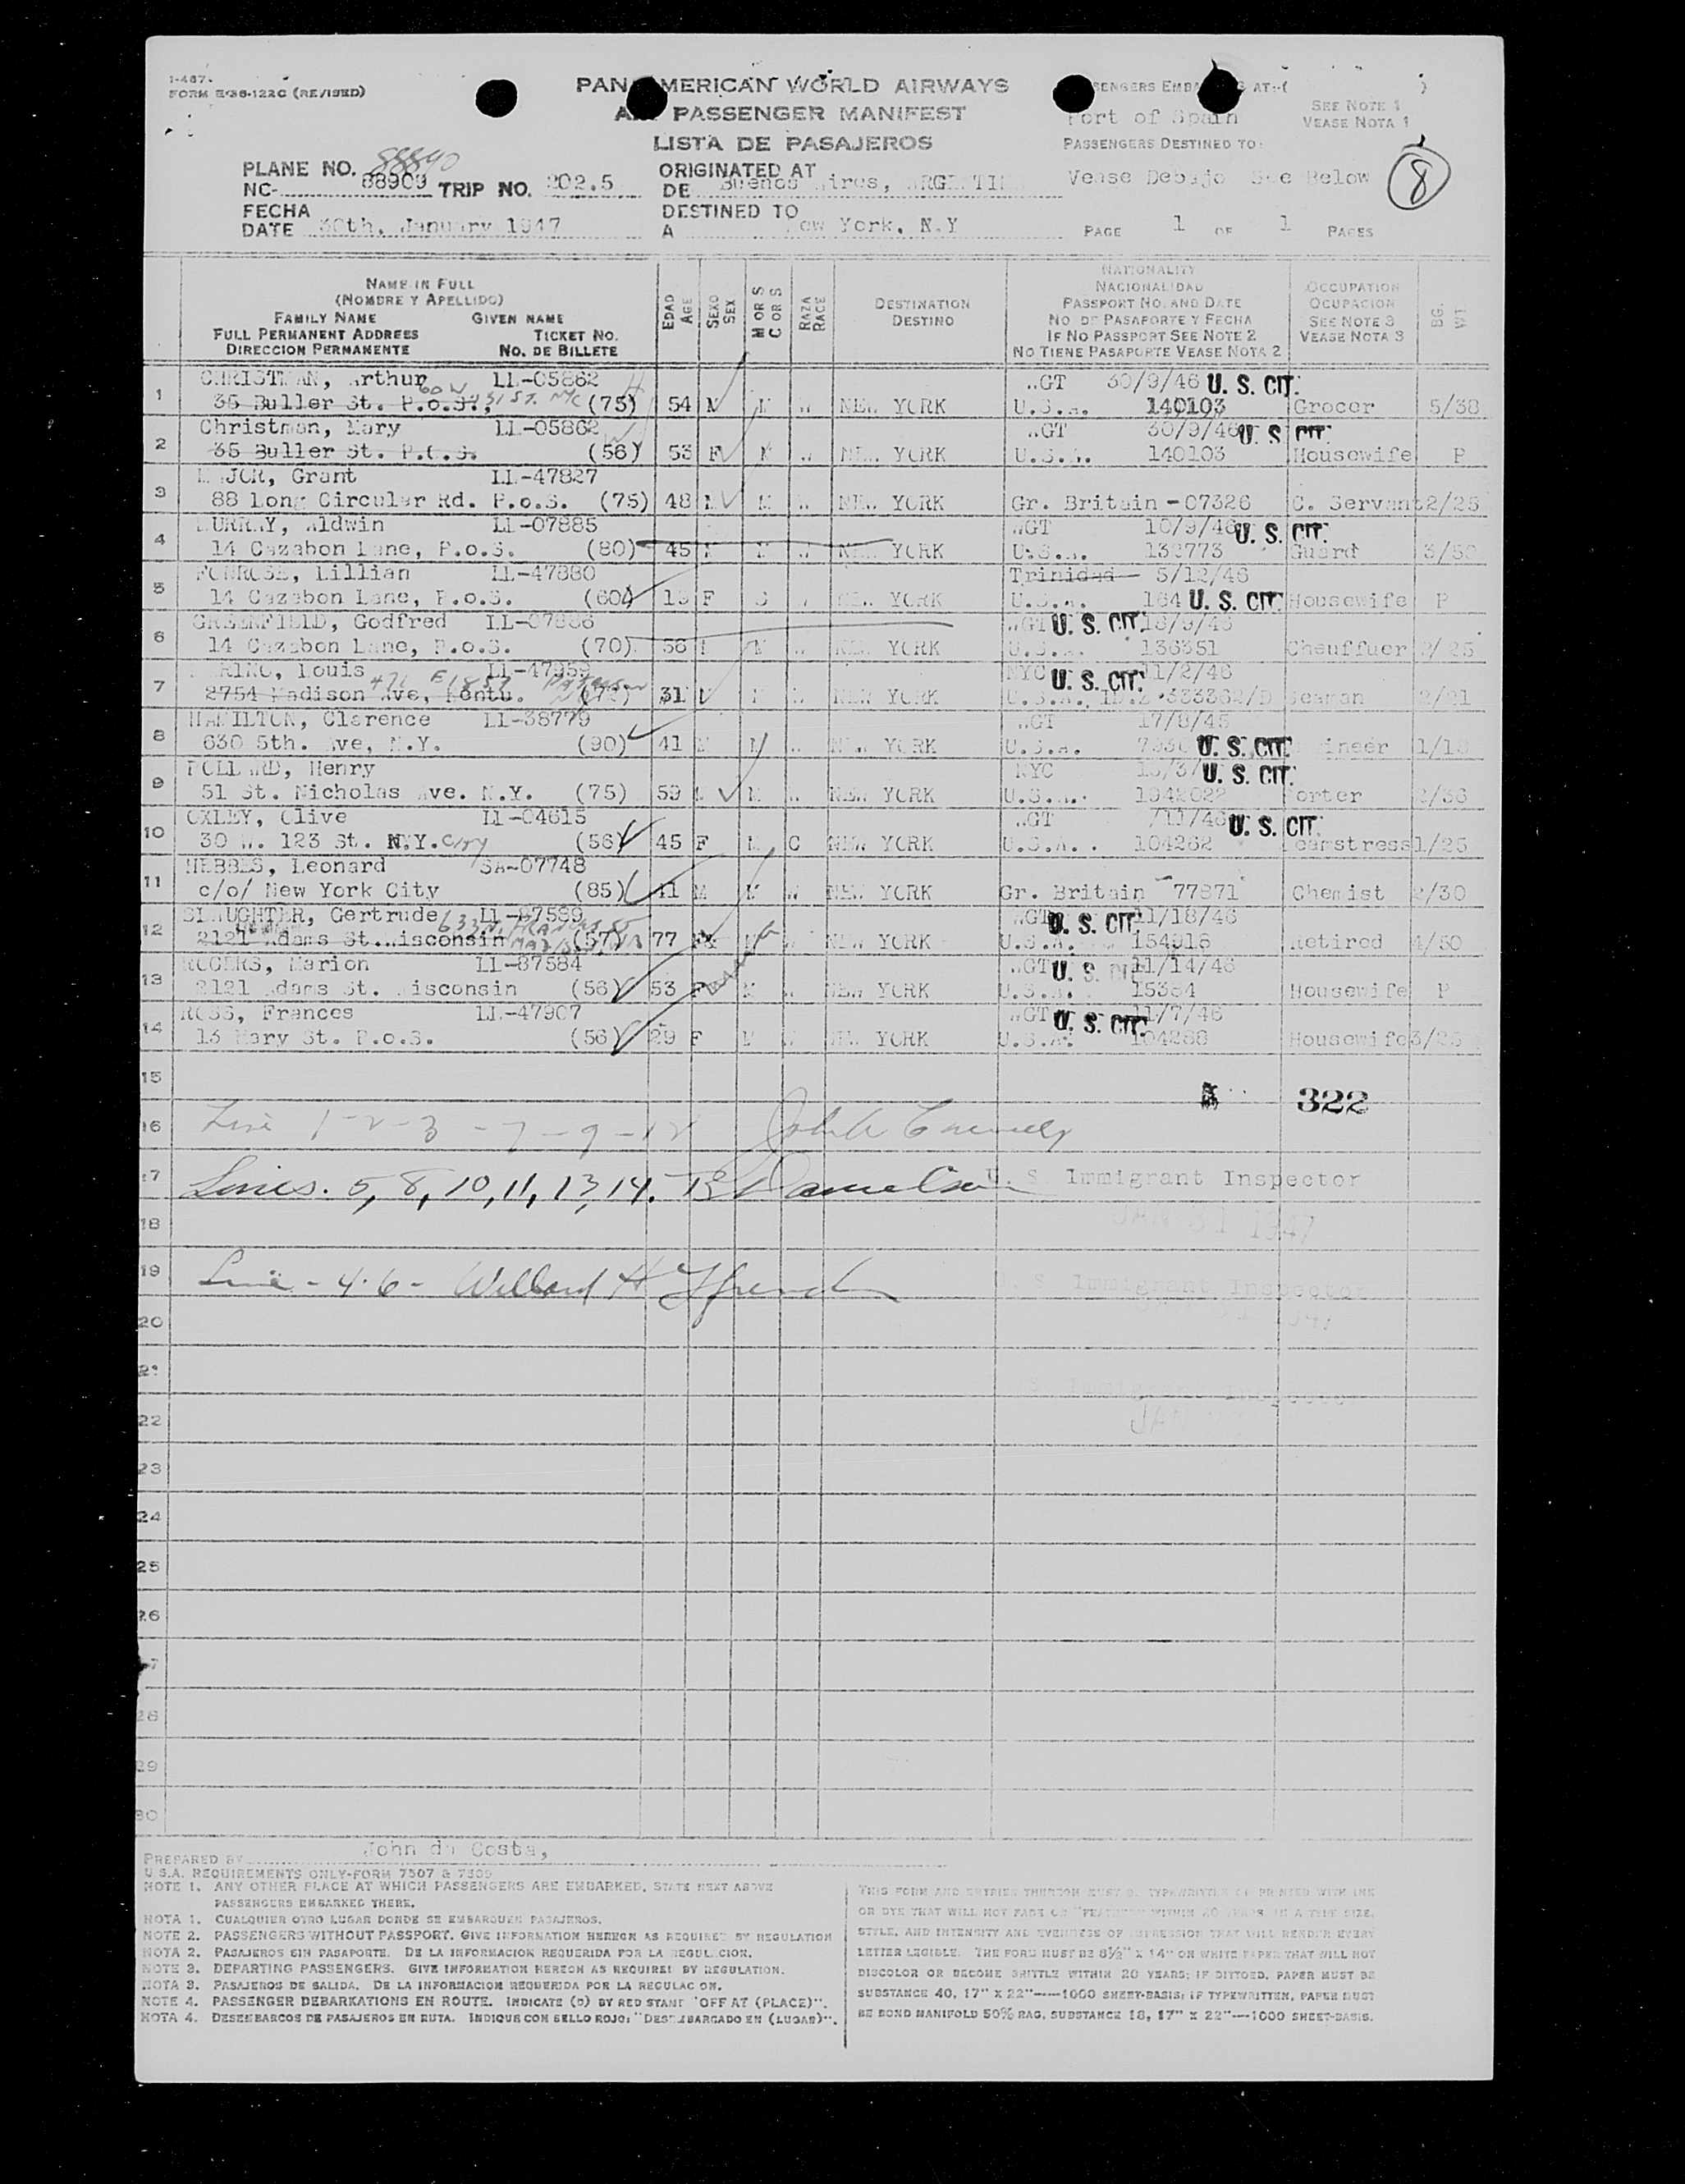 I-467.
FORM E-36-122C (REVISED)
PAN AMERICAN WORLD AIRWAYS
PASSENGER MANIFEST
LISTA DE PASAJEROS
AT:-( )
Port of Spain
SEE NOTE 1
VEASE NOTA 1
PASSENGERS DESTINED TO:
Vease Debajo See Below
8
PLANE NO. 88840
NC- 88909 TRIP NO. 202.5
ORIGINATED AT
DE Buenos Aires, ARGENTINA
FECHA
DATE 30th, January 1947
DESTINED TO
A New York, N.Y
PAGE 1 OF 1 PAGES
NAME IN FULL
(NOMBRE Y APELLIDO)
FAMILY NAME GIVEN NAME
FULL PERMANENT ADDRESS TICKET NO.
DIRECCION PERMANENTE NO. DE BILLETE
EDAD AGE
SEXO SEX
M OR S C OR S
RAZA RACE
DESTINATION
DESTINO
NATIONALITY
NACIONALIDAD
PASSPORT NO. AND DATE
NO DE PASAPORTE Y FECHA
IF NO PASSPORT SEE NOTE 2
NO TIENE PASAPORTE VEASE NOTA 2
OCCUPATION
OCUPACION
SEE NOTE 3
VEASE NOTA 3
BG. WT
1 CHRISTMAN, Arthur LL-05862 WGT 30/9/46 U. S. CIT.
35 Buller St. P.o.S., 60 W 31 ST. NYC (75) 54 M M W NEW YORK U.S.A. 140103 Grocer 5/38
2 Christman, Mary LL-05862 WGT 30/9/46 U. S. CIT.
35 Buller St. P.o.S. (56) 53 F M W NEW YORK U.S.A. 140103 Housewife P
3 MAJOR, Grant LL-47827
88 Long Circular Rd. P.o.S. (75) 48 M M W NEW YORK Gr. Britain - 07326 C. Servant 2/25
4 MURRAY, Aldwin LL-07885 WGT 10/9/46 U. S. CIT.
14 Cazabon Lane, P.o.S. (80) 45 M M W NEW YORK U.S.A. 132773 Guard 3/50
5 PONROSE, Lillian LL-47880 Trinidad 5/12/46
14 Cazabon Lane, P.o.S. (60) F S W NEW YORK U.S.A. 164 U. S. CIT. Housewife P
6 GREENFIELD, Godfred LL-07886 WGT U. S. CIT.
14 Cazabon Lane, P.o.S. (70) 56 M M W NEW YORK U.S.A. 136351 Chauffuer 2/25
7 Louis LL-47959 NYC U. S. CIT. 11/2/46
2754 Madison Ave, 471 E 18 ST Paterson 31 M M W NEW YORK U.S.A. 333362/D Seaman 2/21
8 HAMILTON, Clarence LL-38779 WGT 17/8/45
630 5th. Ave, N.Y. (90) 41 M M W NEW YORK U.S.A. U. S. CIT.
9 POLLARD, Henry NYC U. S. CIT.
51 St. Nicholas Ave. N.Y. (75) 59 M M W NEW YORK U.S.A. 1942022 Porter 2/36
10 OXLEY, Clive LL-04615 WGT /11/46 U. S. CIT.
30 W. 123 St. N.Y. City (56) 45 F M C NEW YORK U.S.A. 104262 Seamstress 1/25
11 HEBBES, Leonard SA-07748
c/o/ New York City (85) 41 M M W NEW YORK Gr. Britain - 77871 Chemist 2/30
12 SLAUGHTER, Gertrude LL-87589 WGT U. S. CIT. 11/18/46
2121 Adams St. Wisconsin 633 N. FRANCES ST (57) 77 F NEW YORK U.S.A. 154916 Retired 4/50
13 ROGERS, Marion LL-87584 WGT U. S. CIT. 11/14/46
2121 Adams St. Wisconsin (56) 53 F M W NEW YORK U.S.A. 15364 Housewife P
14 ROSS, Frances LL-47907 WGT U. S. CIT. 11/7/46
13 Mary St. P.o.S. (56) 29 F M W NEW YORK U.S.A. 104286 Housewife 3/25
15
322
16 Line 1-2-3-7-9-12
17 Lines. 5, 8, 10, 11, 13, 14. U. S. Immigrant Inspector
18 JAN 31 1947
19 Line - 4.6 - Willard H U. S. Immigrant Inspector
20
21
22 JAN
23
24
25
26
27
28
29
30
PREPARED BY John da Costa,
U.S.A. REQUIREMENTS ONLY-FORM 7507 & 7509
NOTE 1. ANY OTHER PLACE AT WHICH PASSENGERS ARE EMBARKED, STATE NEXT ABOVE
PASSENGERS EMBARKED THERE.
NOTA 1. CUALQUIER OTRO LUGAR DONDE SE EMBARQUEN PASAJEROS.
NOTE 2. PASSENGERS WITHOUT PASSPORT. GIVE INFORMATION HEREON AS REQUIRED BY REGULATION
NOTA 2. PASAJEROS SIN PASAPORTE. DE LA INFORMACION REQUERIDA POR LA REGULACION.
NOTE 3. DEPARTING PASSENGERS. GIVE INFORMATION HEREON AS REQUIRED BY REGULATION.
NOTA 3. PASAJEROS DE SALIDA. DE LA INFORMACION REQUERIDA POR LA REGULACION.
NOTE 4. PASSENGER DEBARKATIONS EN ROUTE. INDICATE (D) BY RED STAMP "OFF AT (PLACE)".
NOTA 4. DESEMBARCOS DE PASAJEROS EN RUTA. INDIQUE CON SELLO ROJO: "DESEMBARCADO EN (LUGAR)".
THIS FORM AND ENTRIES THEREON MUST BE TYPEWRITTEN OR PRINTED WITH INK
OR DYE THAT WILL NOT FADE OR "FEATHER" WITHIN 20 YEARS IN A TYPE SIZE,
STYLE, AND INTENSITY AND EVENNESS OF IMPRESSION THAT WILL RENDER EVERY
LETTER LEGIBLE. THE FORM MUST BE 8½" X 14" ON WHITE PAPER THAT WILL NOT
DISCOLOR OR BECOME BRITTLE WITHIN 20 YEARS; IF DITTOED, PAPER MUST BE
SUBSTANCE 40, 17" X 22"-1000 SHEET-BASIS; IF TYPEWRITTEN, PAPER MUST
BE BOND MANIFOLD 50% RAG, SUBSTANCE 18, 17" X 22"-1000 SHEET-BASIS.